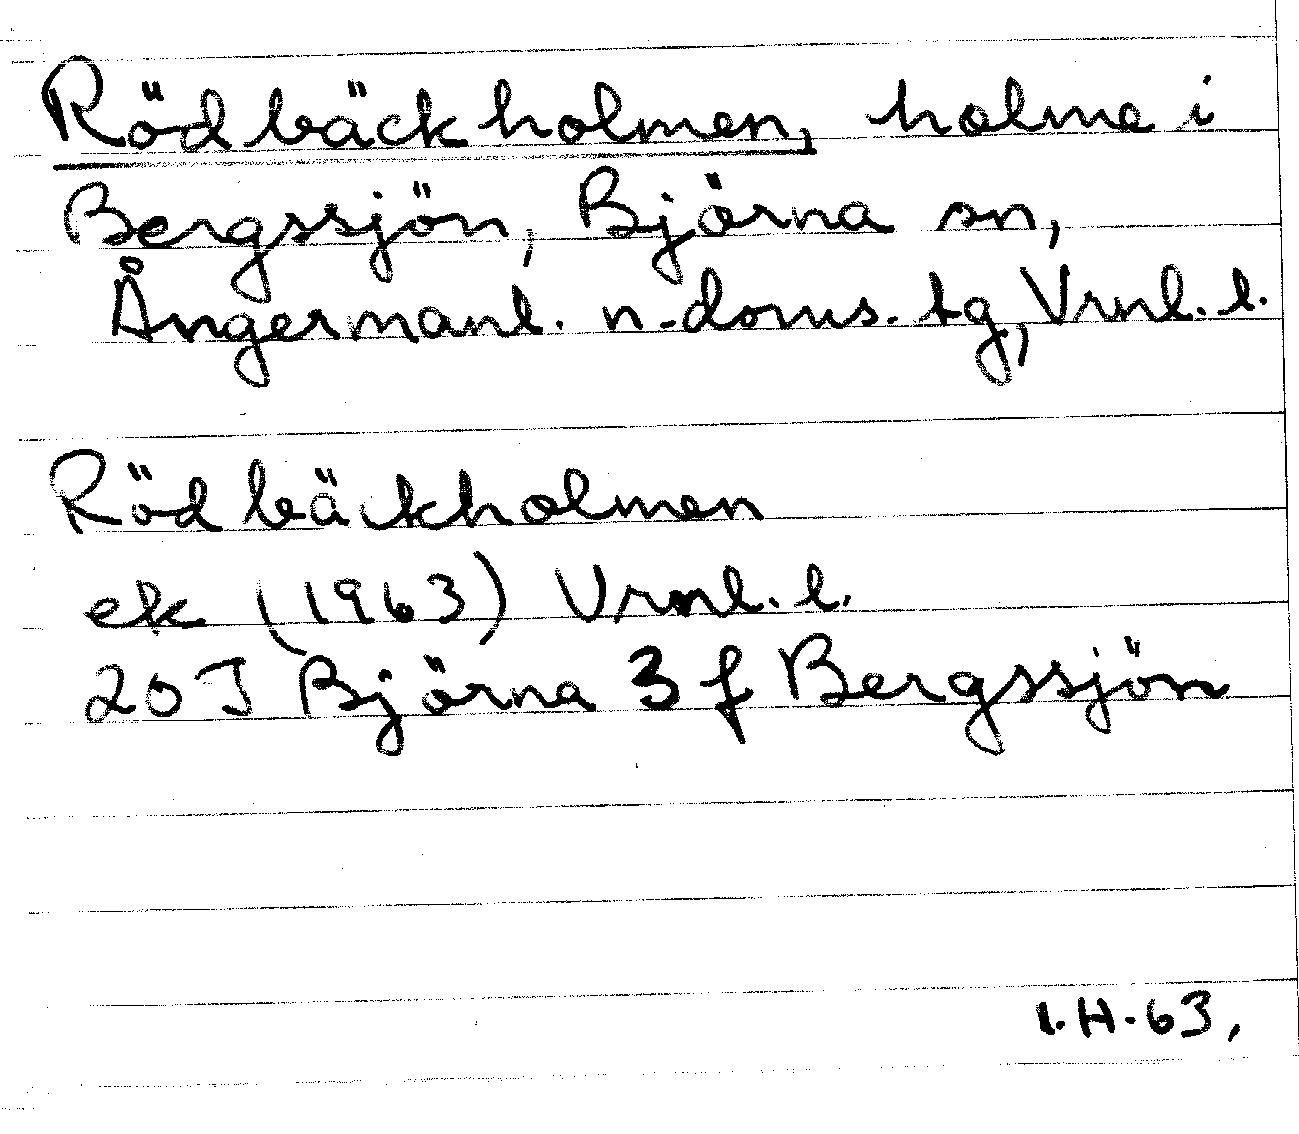 Rödbäckholmen, holme i
Bergssjön, Björna sn,
Ångermanl. n. doms. tg, Vrnl. l.
Rödbäckholmen
ek (1963) Vrnl. l.
20 J Björna 3 f Bergssjön
I.H.63,